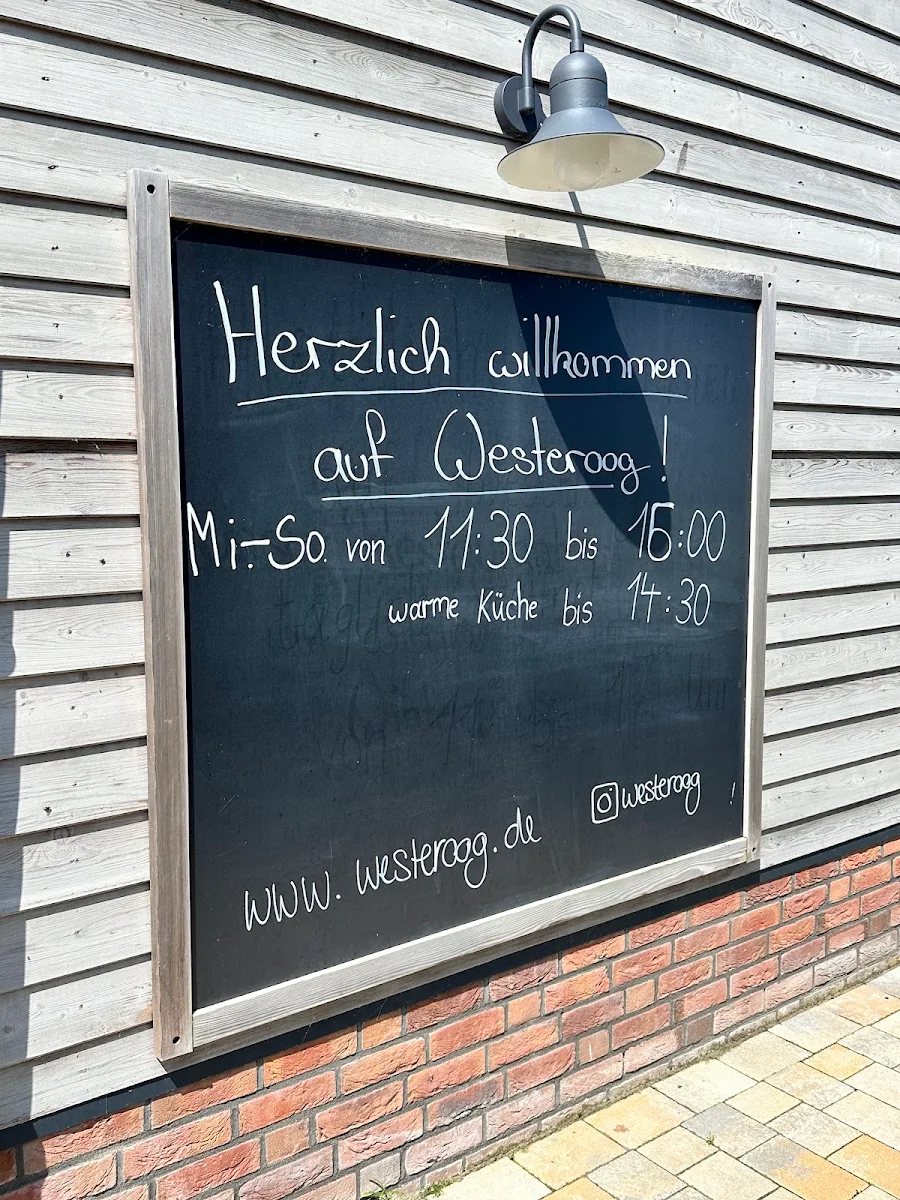 Herzlich willkommen
auf Westeroog!
Mi.-So. von 11:30 bis 15:00
warme Küche bis 14:30
von 11 bis 17 Uhr
westeroog !
www.westeroog.de